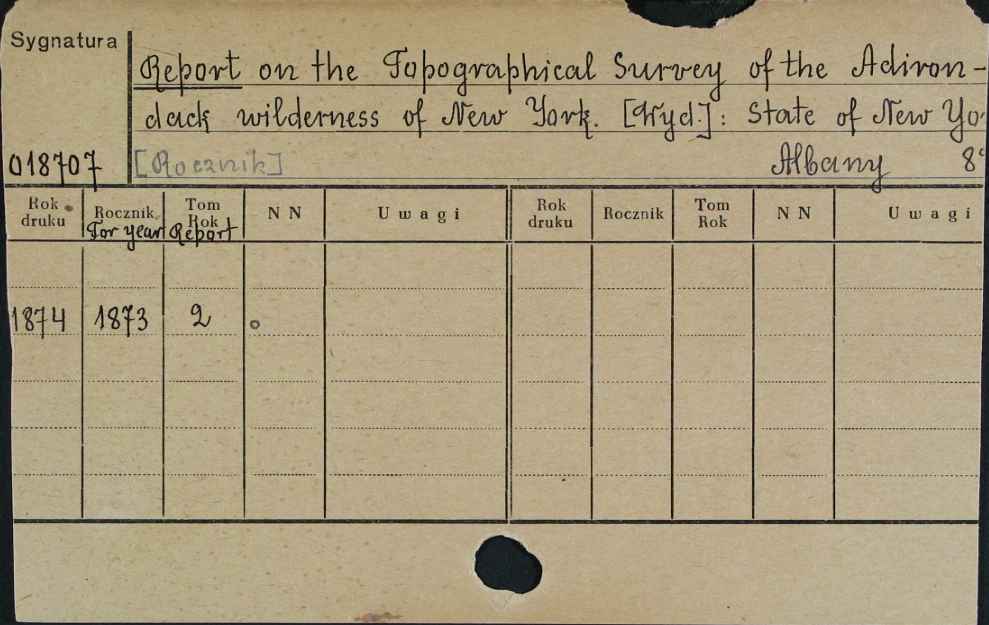 Sygnatura
Report on the Topographical Survey of the Adiron-
dack wilderness of New York. [Wyd.]: State of New Yo
018707 [Rocznik] Albany 8°
Rok druku Rocznik Tom Rok N N Uwagi Rok druku Rocznik Tom Rok N N Uwagi
For year Report
1874 1873 2 o